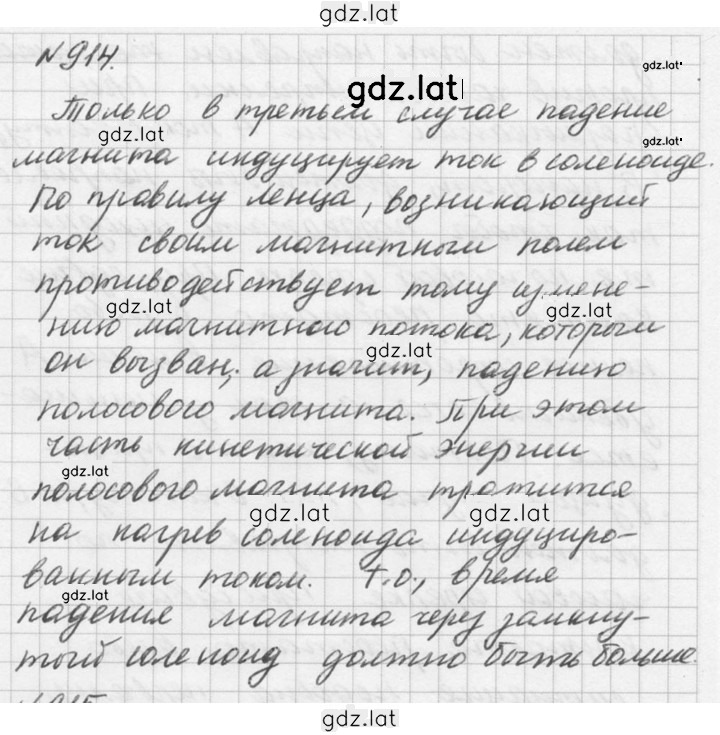 gdz.lat
№914.
gdz.lat
gdz.lat
Только в третьем случае падение
gdz.lat
gdz.lat
магнита индуцирует ток в соленоиде.
По правилу Ленца, возникающий
ток своим магнитным полем
противодействует тому измене-
gdz.lat
нию магнитного потока, которым
gdz.lat
он вызван, а значит, падению
полосового магнита. При этом
часть кинетической энергии
gdz.lat
полосового магнита тратится
gdz.lat
gdz.lat
на нагрев соленоида индуциро-
ванным током. Т.о., время
gdz.lat
падения магнита через замкну-
тый соленоид должно быть больше.
gdz.lat